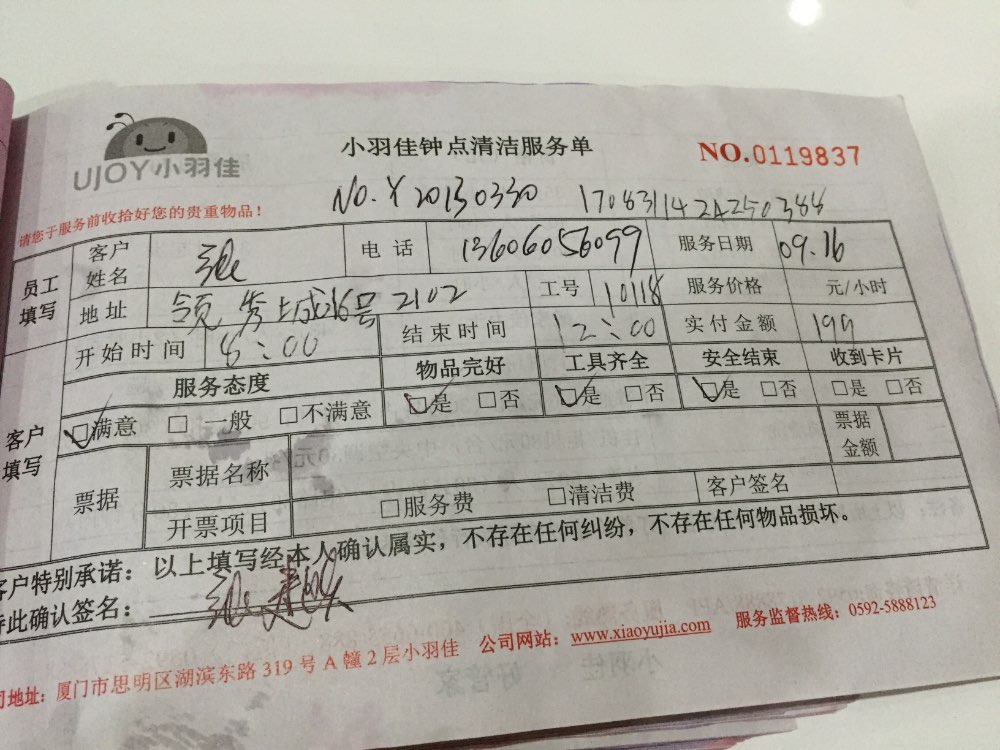 UJOY小羽佳
小羽佳钟点清洁服务单
NO.0119837
NO.Y20130330 170831142A250388
请您于服务前收拾好您的贵重物品！
员工填写 客户姓名 张 电话 13606056099 服务日期 09.16
地址 领秀上城16号2102 工号 10118 服务价格 元/小时
开始时间 8:00 结束时间 12:00 实付金额 199
客户填写 服务态度 物品完好 工具齐全 安全结束 收到卡片
☑满意 □一般 □不满意 ☑是 □否 ☑是 □否 ☑是 □否 □是 □否
票据 票据名称 票据金额
开票项目 □服务费 □清洁费 客户签名
客户特别承诺：以上填写经本人确认属实，不存在任何纠纷，不存在任何物品损坏。
特此确认签名：张
司地址：厦门市思明区湖滨东路319号A幢2层小羽佳 公司网站：www.xiaoyujia.com 服务监督热线：0592-5888123